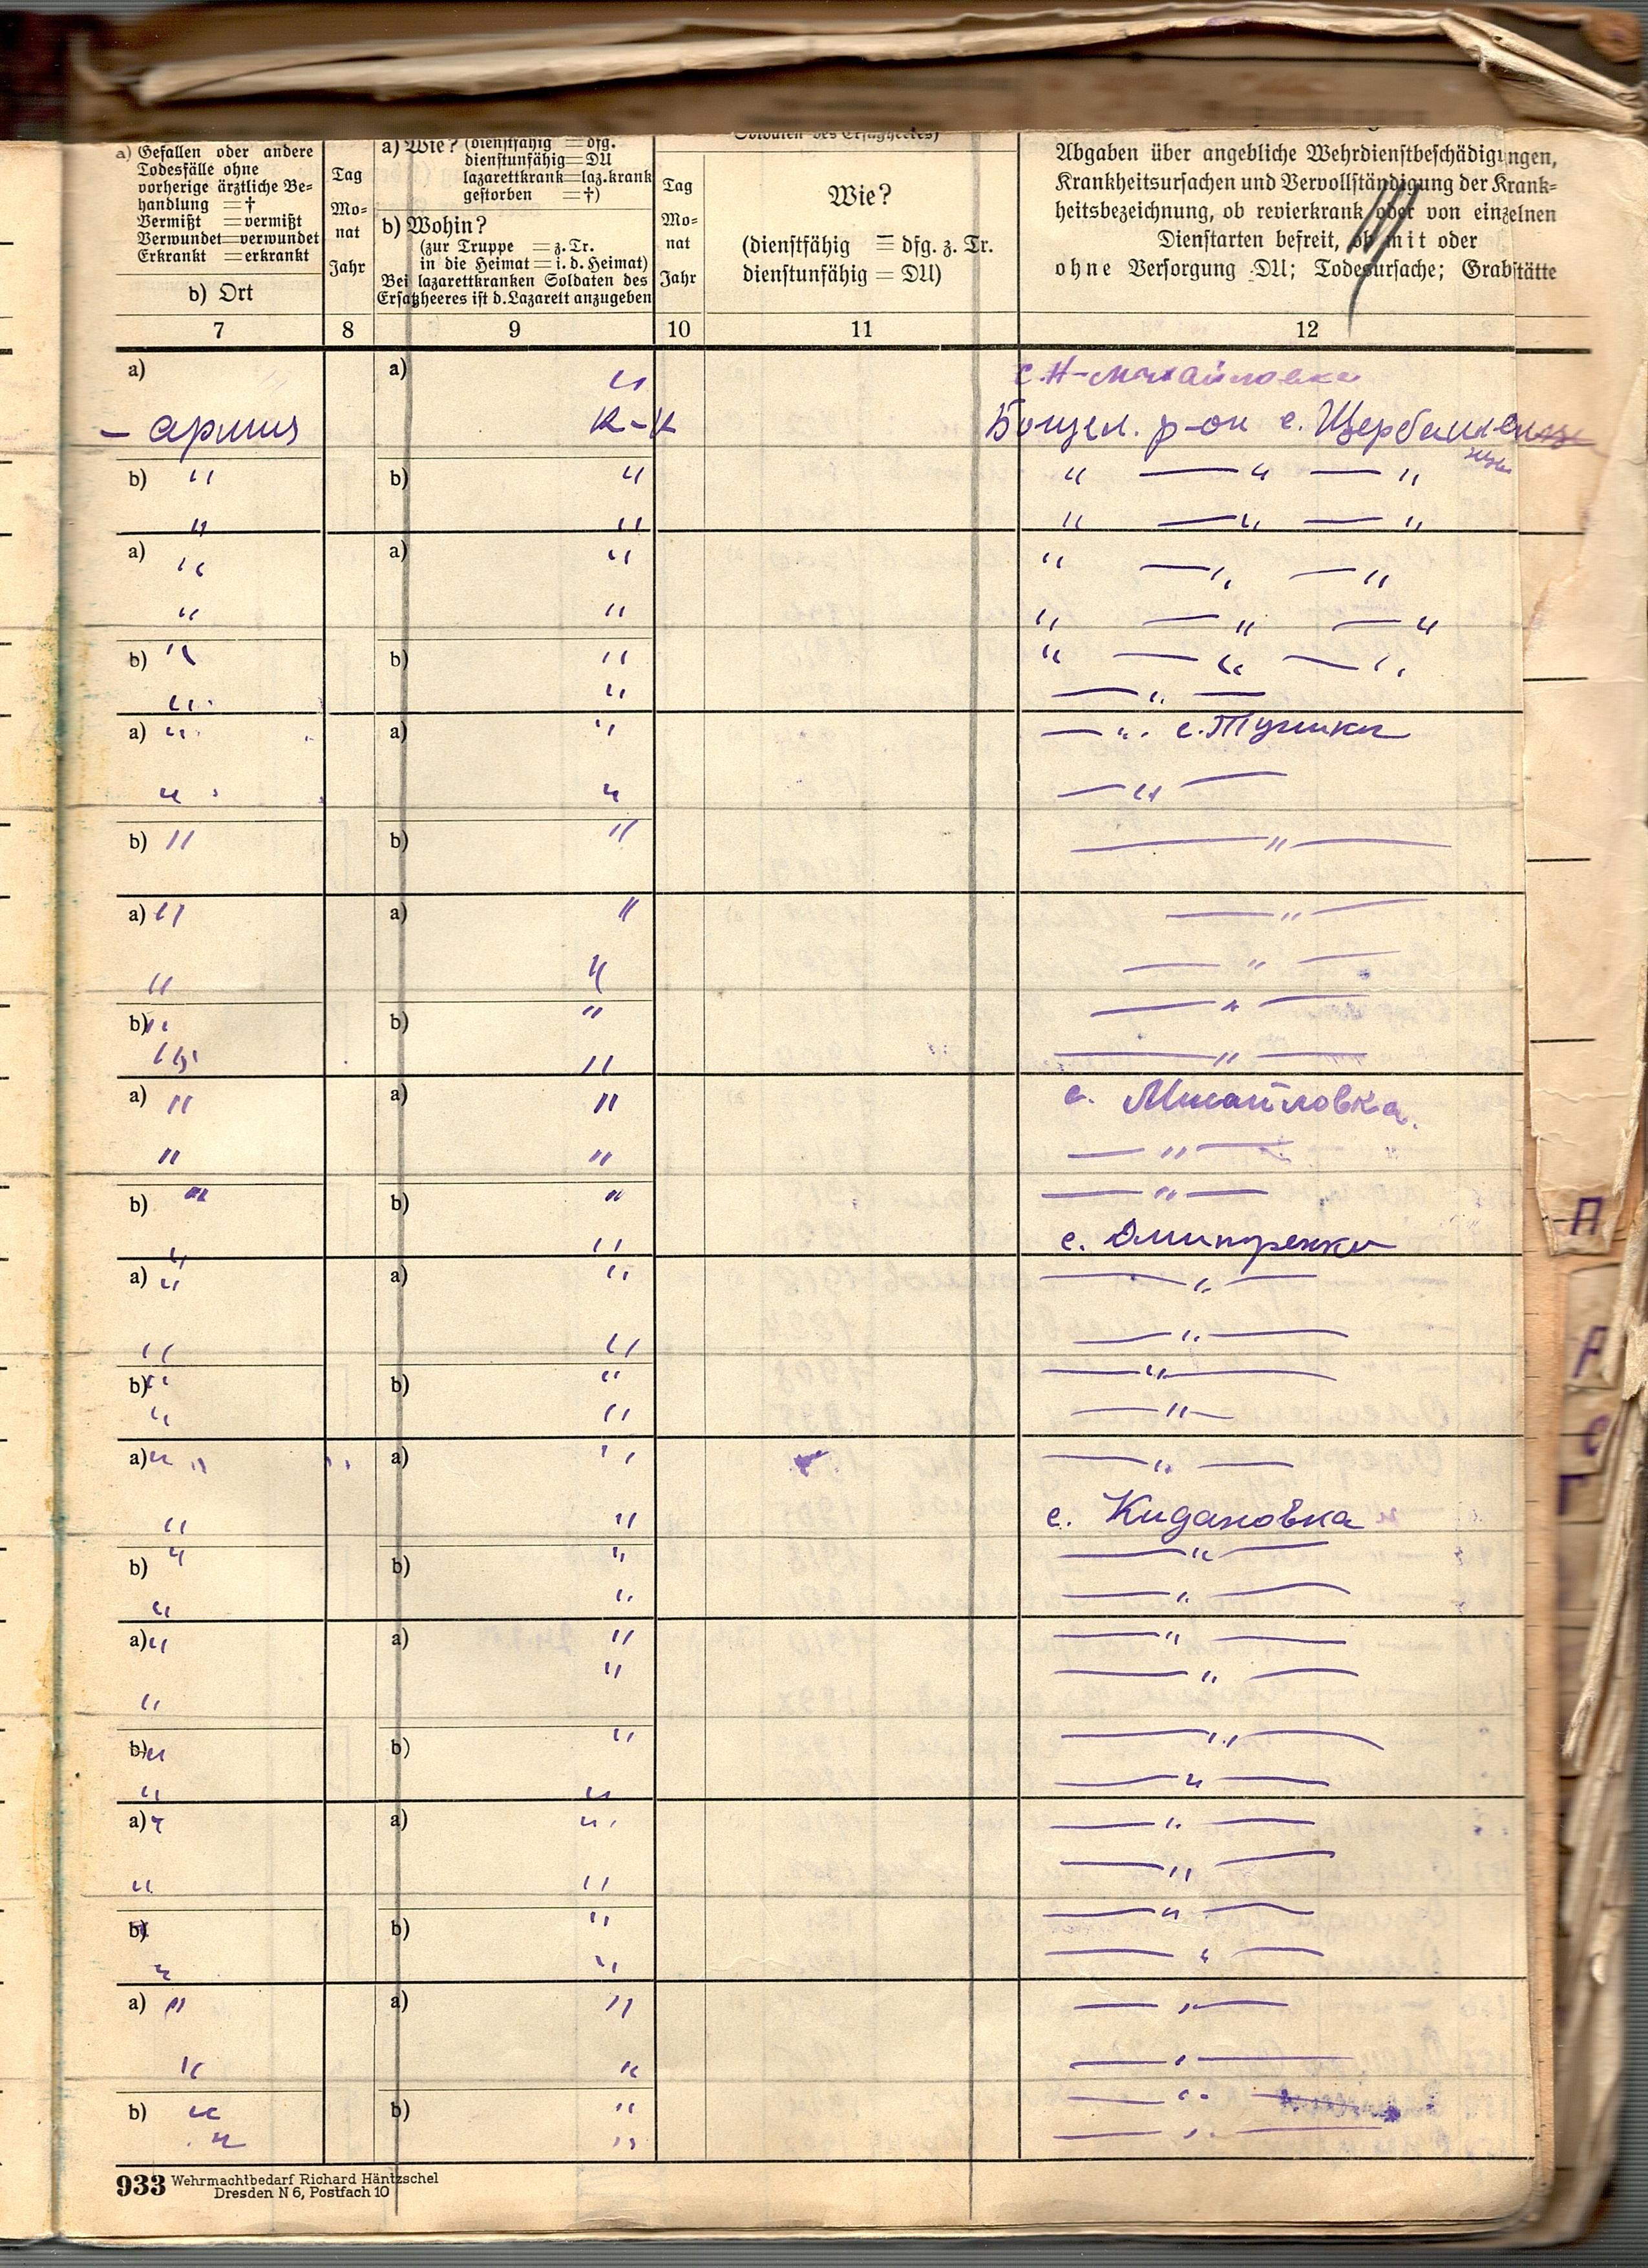 a) Gefallen oder andere
Todesfälle ohne
vorherige ärztliche Be=
handlung =†
Vermißt =vermißt
Verwundet=verwundet
Erkrankt =erkrankt
b) Ort
Tag
Mo-
nat
Jahr
a) Wie? (dienstfähig =dfg.
dienstunfähig=DU
lazarettkrank=laz.krank
gestorben =†)
b) Wohin?
(zur Truppe =z.Tr.
in die Heimat=i.d.Heimat)
Bei lazarettkranken Soldaten des
Ersatzheeres ist d.Lazarett anzugeben
Soldaten des Ersatzheeres)
Tag
Mo-
nat
Jahr
Wie?
(dienstfähig = dfg. z. Tr.
dienstunfähig = DU)
Abgaben über angebliche Wehrdienstbeschädigungen,
Krankheitsursachen und Vervollständigung der Krank=
heitsbezeichnung, ob revierkrank oder von einzelnen
Dienstarten befreit, ob mit oder
ohne Versorgung DU; Todesursache; Grabstätte
7 8 9 10 11 12
a) a) " с. Н-Михайловка
– армия к-к р-он с.
b) " b) " " — " — "
" " " — " — "
a) " a) " " — " — "
" " " — " — "
b) " b) " " — " — "
" " — " —
a) " a) " — " с. Тушки
" " — " —
b) " b) " — " —
a) " a) " — " —
" " — " —
b) " b) " — " —
" " — " —
a) " a) " с. Михайловка.
" " — " —
b) " b) " — " —
" " с. Дмитренки
a) " a) " — " —
" " — " —
b) " b) " — " —
" " — " —
a) " a) " — " —
" " с. Кидановка
b) " b) " — " —
" " — " —
a) " a) " — " —
" — " —
"
b) " b) " — " —
" " — " —
a) " a) " — " —
" " — " —
b) " b) " — " —
" " — " —
a) " a) " — " —
" " — " —
b) " b) " — " —
" " — " —
933 Wehrmachtbedarf Richard Häntzschel
Dresden N 6, Postfach 10
П
Р
С
Т